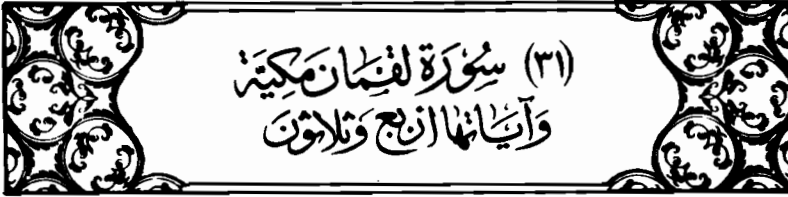 (٣١) سُورَة لقمَان مَكِيَّة
وَآيَاتهَا أَربَع وَثَلاثونَ